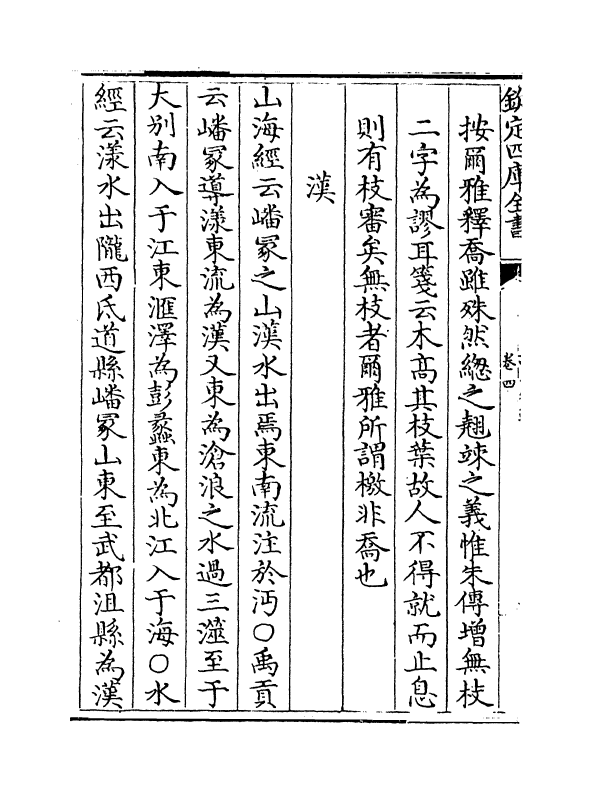 欽定四庫全書
卷四
按爾雅釋喬雖殊然總之翹竦之義惟朱傳增無枝
二字為謬耳箋云木髙其枝葉故人不得就而止息
則有枝審矣無枝者爾雅所謂檄非喬也
漢
山海經云嶓冢之山漢水出焉東南流注於沔○禹貢
云嶓冢導漾東流為漢又東為滄浪之水過三澨至于
大别南入于江東滙澤為彭蠡東為北江入于海○水
經云漾水出隴西氐道縣嶓冢山東至武都沮縣為漢